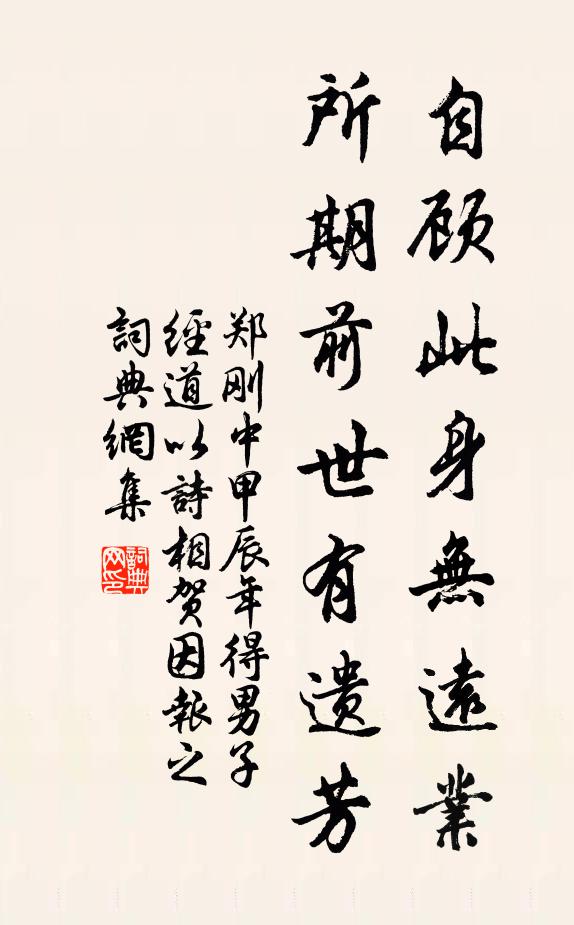 自顾此身無遠業
所期前世有遗芳
郑刚中甲辰年得男子
經道以詩相贺因報之
詞典網集
詞典
网印